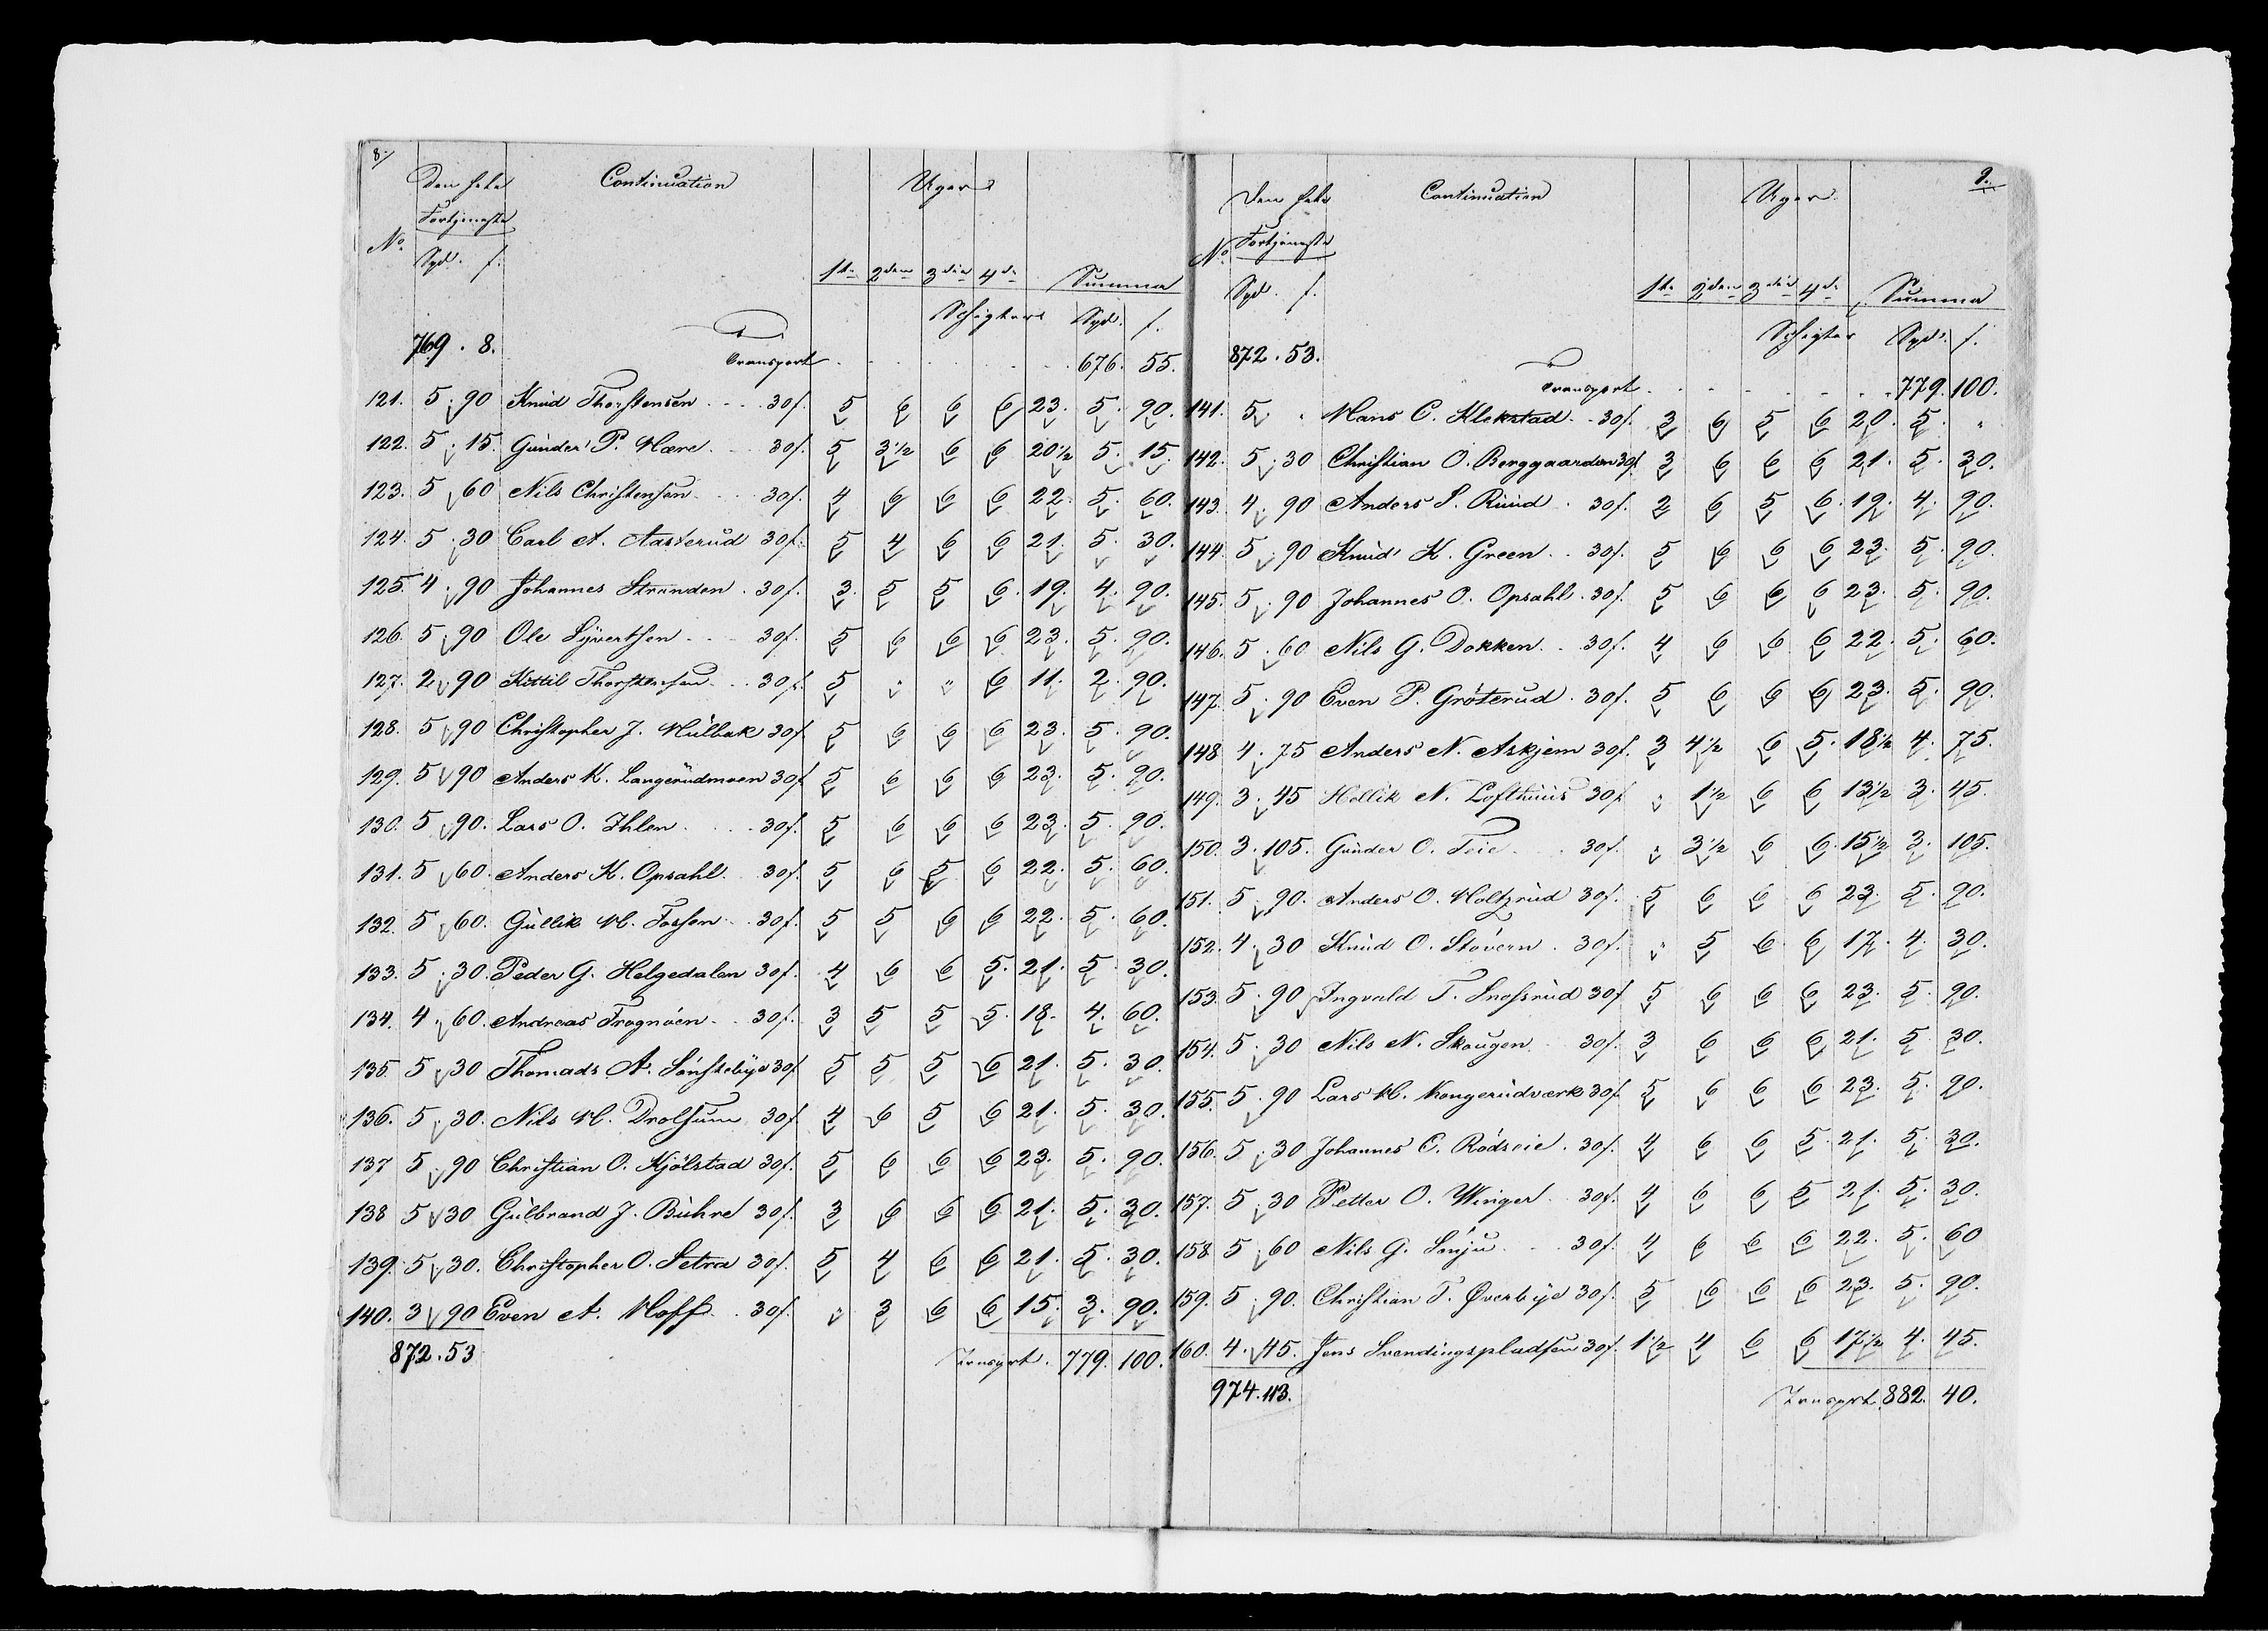 8./
Den hele Continuation Uger
Fortjeneste
No. Spd. f.
1te 2den 3die 4de Summa
Schigter Spd. f.
769. 8. Transport 676. 55.
121. 5. 90 Knud Thorstensen 30f. 5 6 6 6 23. 5. 90.
122. 5. 15. Gunder P. Mære 30f. 5 3½ 6 6 20½ 5. 15.
123. 5 60 Nils Christensen 30f. 4 6 6 6 22. 5. 60.
124. 5. 30 Carl A. Aasterud 30f. 5 4 6 6 21. 5. 30.
125. 4. 90 Johannes Stranden 30f. 3. 5 5 6. 19. 4. 90.
126. 5. 90 Ole Syvertsen 30f. 5 6 6 6 23. 5. 90.
127. 2. 90 Kittil Thorstensen 30f. 5 " " 6 11. 2. 90.
128. 5 90 Christopher J. Mulbak 30f 5 6 6 6 23. 5. 90.
129. 5 90 Anders K. Langerudmoen 30f 5 6 6 6 23. 5. 90.
130. 5 90. Lars O. Ihlen 30f. 5 6 6 6 23. 5. 90.
131. 5 60. Anders K. Opsahl 30f. 5 6 5 6 22. 5. 60.
132. 5 60. Gullik M. Fossen 30f. 5 5 6 6 22. 5. 60.
133. 5. 30. Peder G. Helgedalen 30f. 4 6 6 5. 21. 5. 30.
134. 4. 60. Andreas Frognöen 30f. 3 5 5 5. 18. 4. 60.
135. 5 30 Thomads A. Sönstebye 30f 5 5 5 6 21. 5. 30.
136. 5. 30. Nils M. Drolsum 30f. 4 6 5 6 21. 5. 30.
137 5. 90 Christian O. Kjölstad 30f. 5 6 6 6 23. 5. 90.
138 5 30 Gulbrand J. Buhre 30f. 3 6 6 6 21. 5. 30.
139. 5 30. Christopher O. Setra 30f. 5 4 6 6 21. 5. 30.
140. 3 90 Even A. Moff 30f. " 3 6 6 15. 3. 90.
872. 53 Transport. 779. 100.
9.
Den hele Continuation Uger
Fortjeneste
No. Spd. f.
1te 2den 3die 4de Summa
Schigter Spd. f.
872. 53. Transport 779. 100.
141. 5. " Hans C. Klekstad 30f. 3 6 5 6 20. 5. "
142. 5. 30 Christian O. Berggaarden 30f 3 6 6 6 21. 5. 30.
143. 4. 90 Anders S. Ruud 30f. 2 6 5 6. 19. 4. 90.
144. 5. 90 Knud K. Green 30f. 5 6 6 6 23. 5. 90.
145. 5. 90 Johannes O. Opsahl 30f. 5 6 6 6 23. 5. 90.
146. 5. 60 Nils G. Dokken 30f. 4 6 6 6 22. 5. 60.
147. 5. 90 Even P. Gröterud 30f. 5 6 6 6 23. 5. 90.
148 4. 75 Anders N. Askjem 30f. 3 4½ 6 5. 18½ 4. 75.
149. 3. 45 Hellik N. Lofthuus 30f " 1½ 6 6 13½ 3. 45.
150. 3. 105. Gunder O. Teie 30f. " 3½ 6 6. 15½ 3. 105.
151. 5. 90. Anders O. Holtzrud 30f. 5 6 6 6 23. 5. 90.
152. 4. 30 Knud O. Stövern 30f. " 5 6 6 17. 4. 30.
153. 5. 90 Ingvald T. Snessrud 30f 5 6 6 6 23. 5. 90.
154. 5. 30 Nils N. Skougen 30f. 3 6 6 6 21. 5. 30.
155. 5. 90 Lars M. Kongerudværk 30f 5 6 6 6 23. 5. 90.
156. 5. 30 Johannes C. Rödseie 30f. 4 6 6 5. 21. 5. 30.
157. 5. 30 Petter O. Winger 30f. 4 6 6 5 21. 5. 30.
158 5. 60 Nils G. Sönju 30f. 4 6 6 6 22. 5. 60
159. 5. 90. Christian T. Øverbye 30f. 5 6 6 6 23. 5. 90.
160. 4. 45. Jens Svendingspladsen 30f. 1½ 4 6 6 17½ 4. 45.
974. 113. Transport 882. 40.